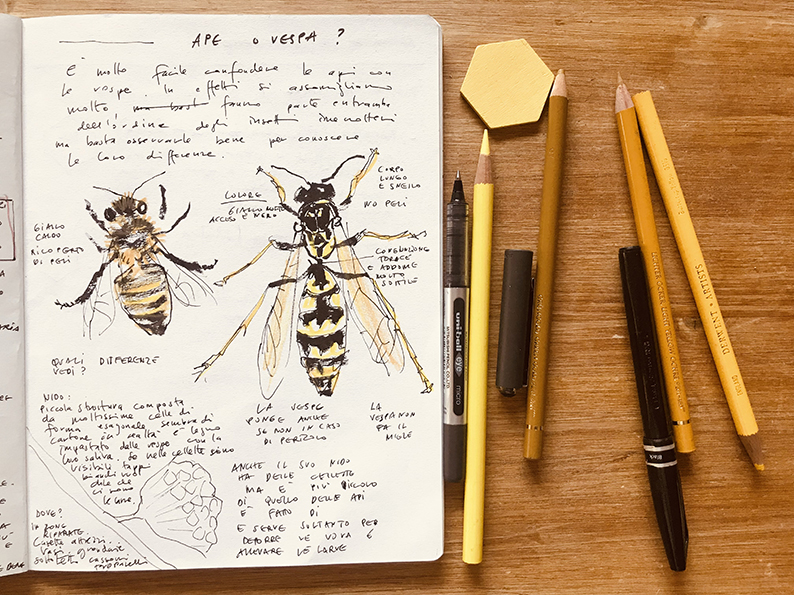 APE O VESPA?
E' molto facile confondere le api con
le vespe. In effetti si assomigliano
molto fanno parte entrambe
dell'ordine degli insetti imenotteri
ma basta osservarle bene per conoscere
le loro differenze.
GIALLO
CALDO
RICOPERTO
DI PELI
COLORE
GIALLO MOLTO
ACCESO E NERO
CORPO
LUNGO
E SNELLO
NO PELI
CONGIUNZIONE
TORACE
E ADDOME
MOLTO
SOTTILE
QUALI DIFFERENZE
VEDI?
LA VESPA
PUNGE ANCHE
SE NON IN CASO
DI PERICOLO
LA
VESPA NON
FA IL
MIELE
NIDO:
Piccola struttura composta
da moltissime celle di
forma esagonale, sembra di
cartone in realtà è legno
impastato dalle vespe con la
loro saliva. Se nelle cellette sono
visibili tappi
bianchi vuol
dire che
ci sono
le larve.
ANCHE IL SUO NIDO
HA DELLE CELLETTE
MA È PIÙ PICCOLO
DI QUELLO DELLE API
È FATTO DI
E SERVE SOLTANTO PER
DEPORRE LE UOVA E
ALLEVARE LE LARVE
DOVE?
IN ZONE
RIPARATE.
vasi, grondaie
sottotetti cassoni
uni-ball eye
micro
DERWENT ARTISTS
Black